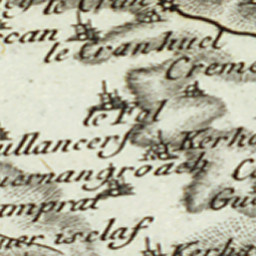 le Cran
can
le Cranhuel
Creme
le Fol
ullancerf
Kerho
ernangroach
Gu
mprat
ner isclaf
Kerha